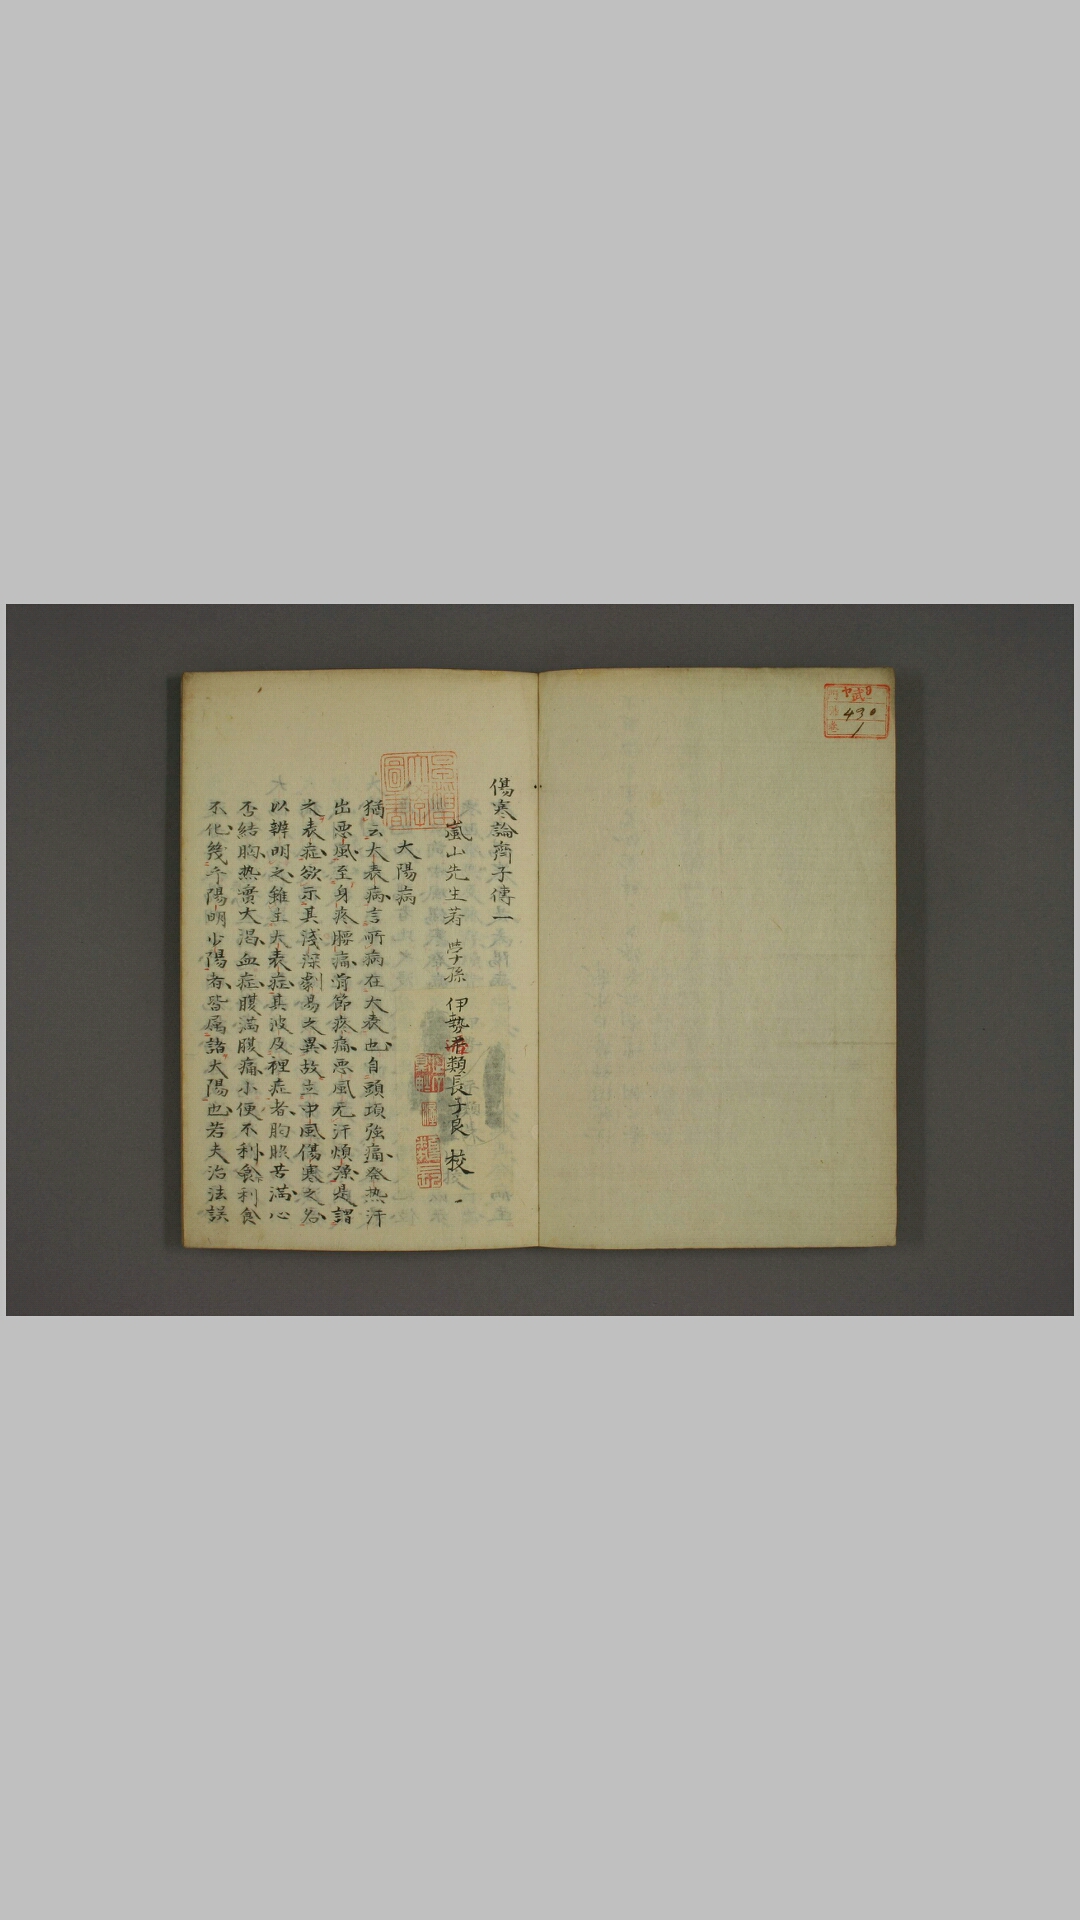 武
490
1
傷寒論齊子傳一
嵐山先生著 学孫 伊勢 類長子良 校
大陽病
猶云大表病言所病在大表也自頭項強痛發热汗
出悪風至身疼腰痛骨節疼痛悪風无汗煩躁是謂
之表症欲示其淺深劇易之異故立中風傷寒之名
以辨明之雖主大表症其波及裡症者胸脇苦滿心
否結胸热實大渇血症腹満腹痛小便不利食利食
不化幾乎陽明少陽者皆属諸大陽也若夫治法誤